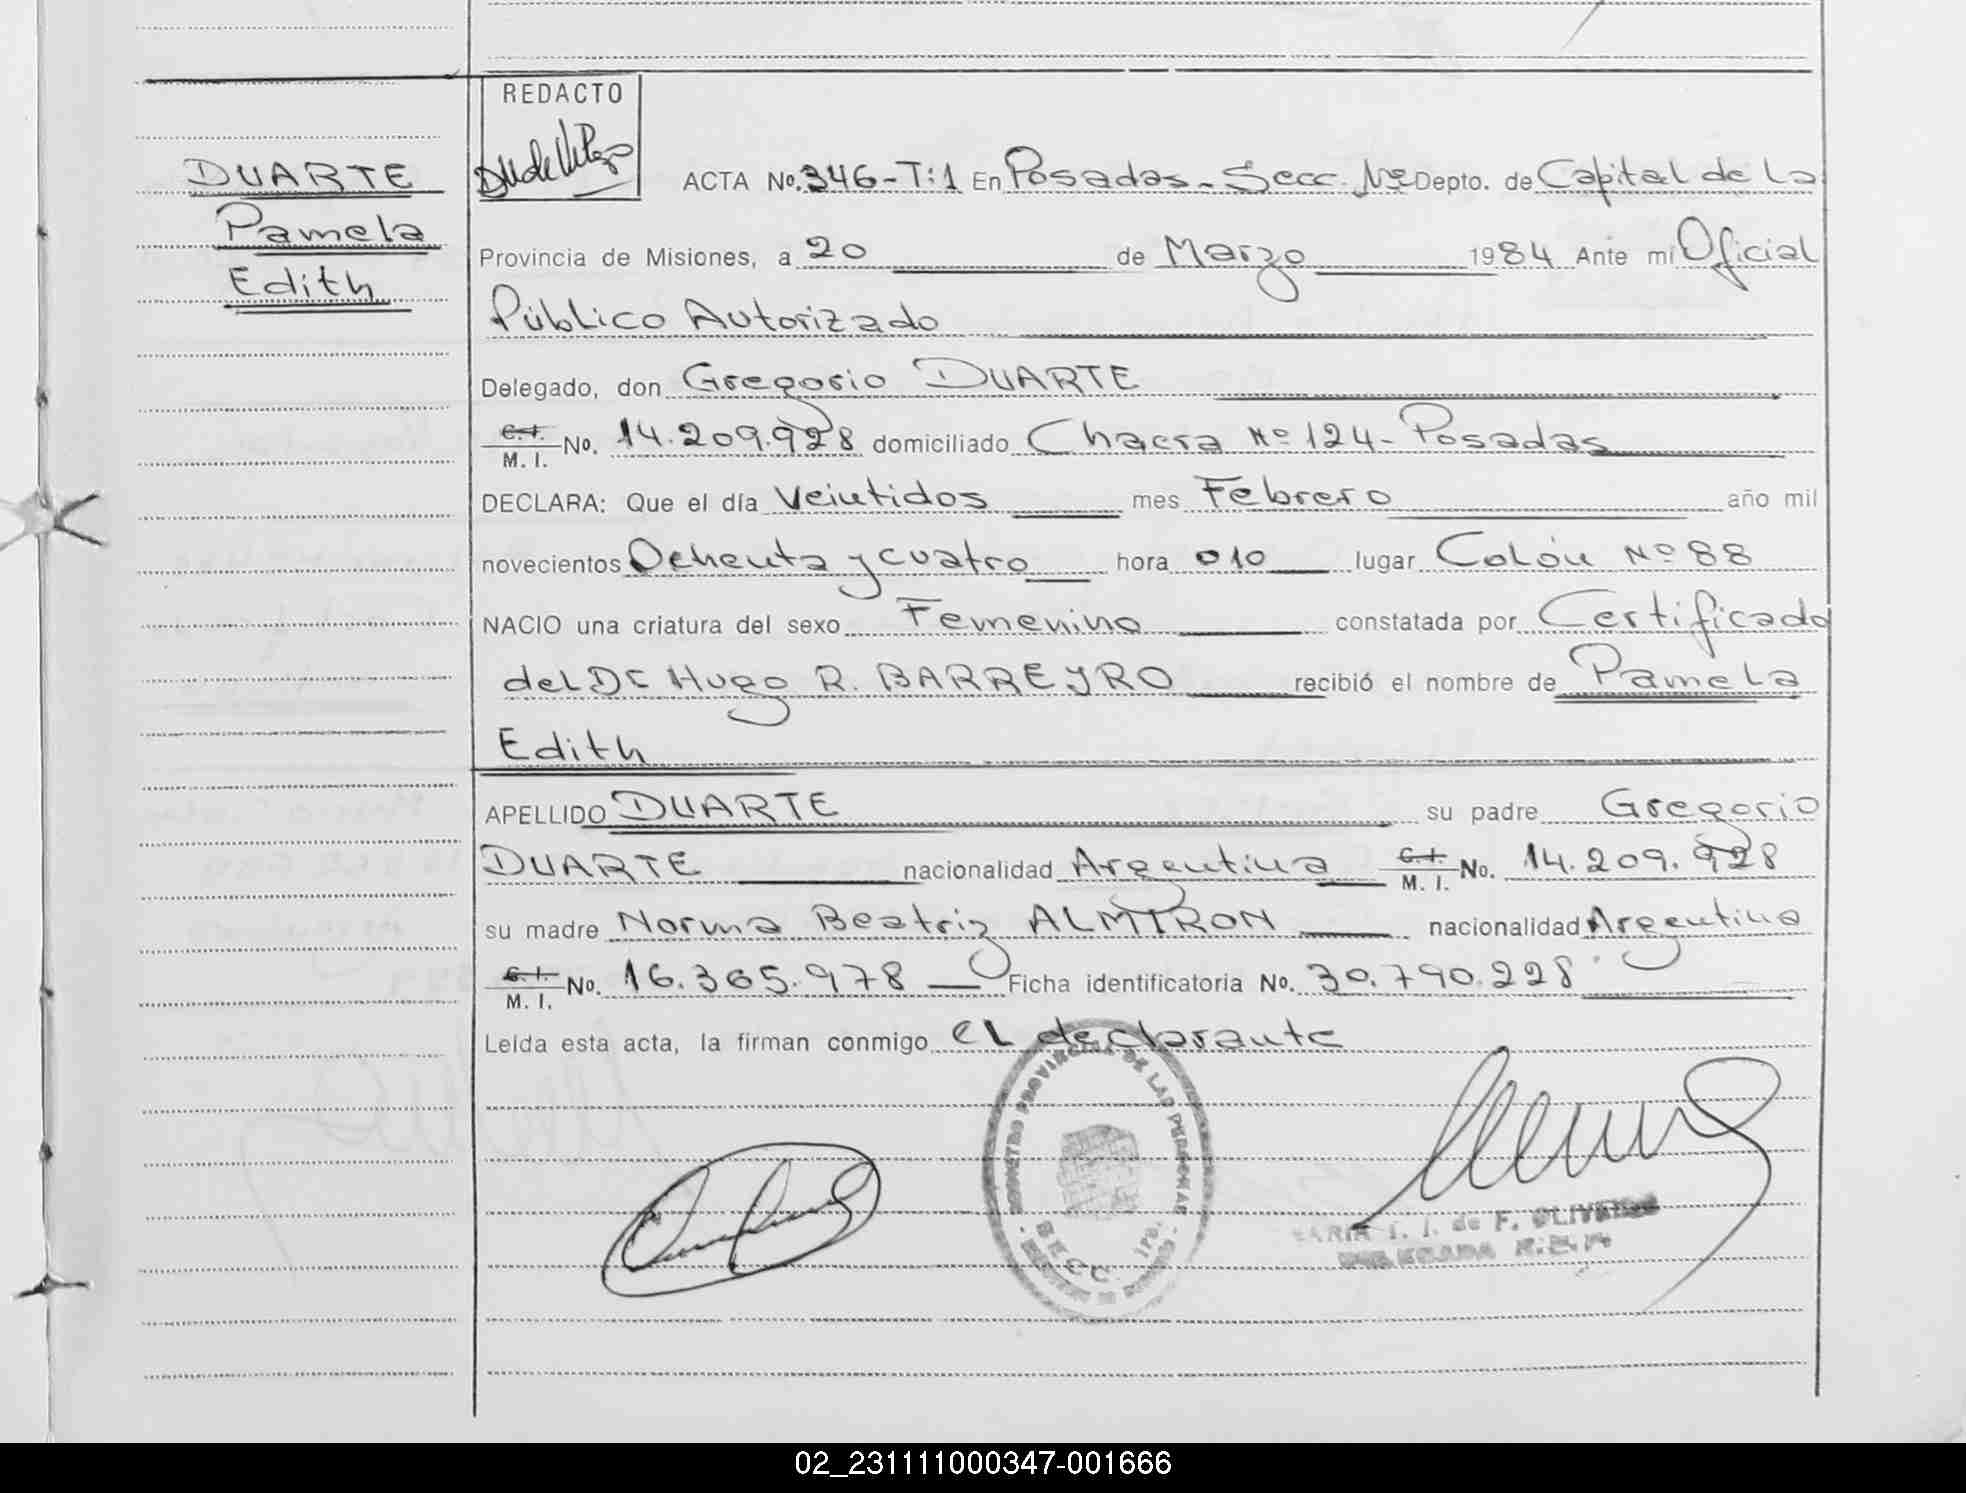 REDACTO
DUARTE
Pamela
Edith
ACTA No. 346-T:1 En Posadas - Secc. Depto. de Capital de La
Provincia de Misiones, a 20 de Marzo 1984 Ante mi Oficial
Público Autorizado
Delegado, don Gregorio DUARTE
C.I. M. I. No. 14.209.928 domiciliado Chacra Nº 124 - Posadas
DECLARA: Que el día Veintidos mes Febrero año mil
novecientos Ochenta y cuatro hora 010 lugar Colón Nº 88
NACIO una criatura del sexo Femenino constatada por Certificado
del Dr Hugo R. BARREYRO recibió el nombre de Pamela
Edith
APELLIDO DUARTE su padre Gregorio
DUARTE nacionalidad Argentina C.I. M. I. No. 14.209.928
su madre Norma Beatriz ALMIRON nacionalidad Argentina
C.I. M. I. No. 16.365.978 Ficha identificatoria No. 30.790.228
Leída esta acta, la firman conmigo el declarante
REGISTRO PROVINCIAL DE LAS PERSONAS
SECC.
MARIA I. I. de F. OLIVEIRA
DELEGADA
02_231111000347-001666